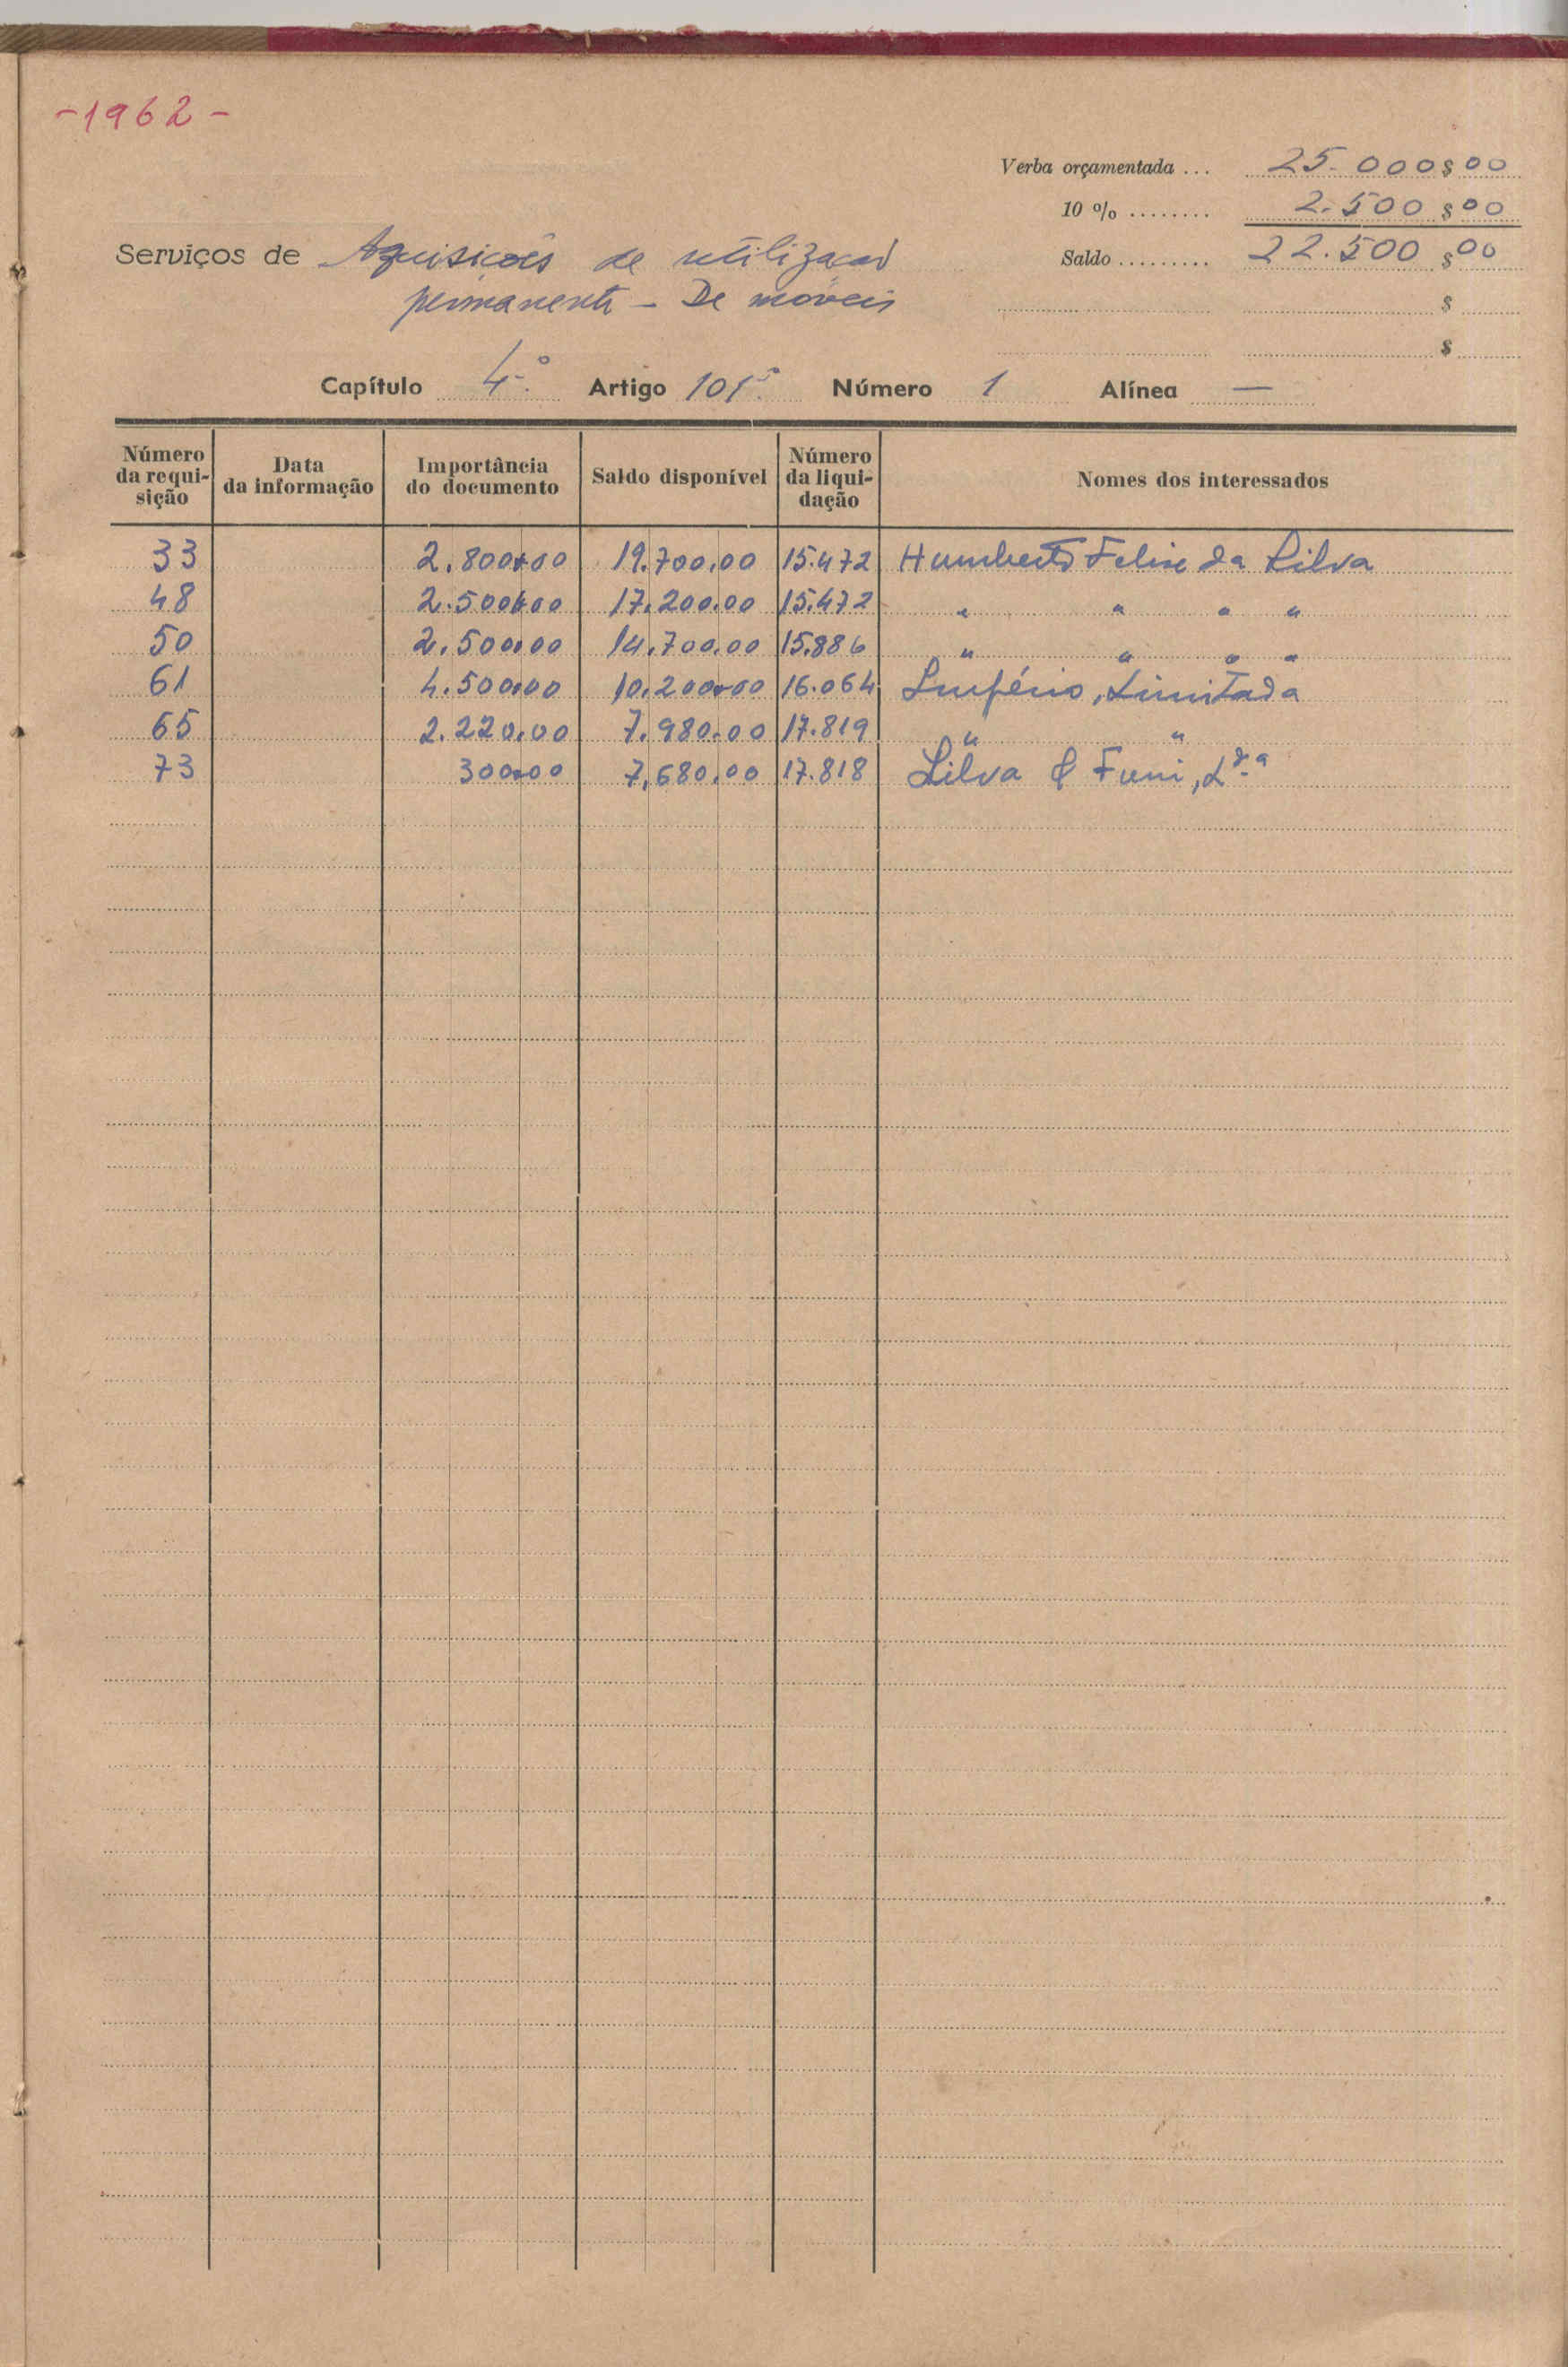 -1962-
Verba orçamentada ... 25.000$00
10 % ........ 2.500$00
Serviços de Aquisições de utilização Saldo ......... 22.500$00
permanente - De móveis $
$
Capítulo 4.º Artigo 101.º Número 1 Alínea —
Número da requi-sição Data da informação Importância do documento Saldo disponível Número da liqui-dação Nomes dos interessados
33 2.800,00 19.700,00 15.472 Humberto Felix da Silva
48 2.500,00 17.200,00 15.472 " " " "
50 2.500,00 14.700,00 15.886 " " " "
61 4.500,00 10.200,00 16.064 Império, Limitada
65 2.220,00 7.980,00 17.819 " "
73 300,00 7.680,00 17.818 Silva & , Ld.ª